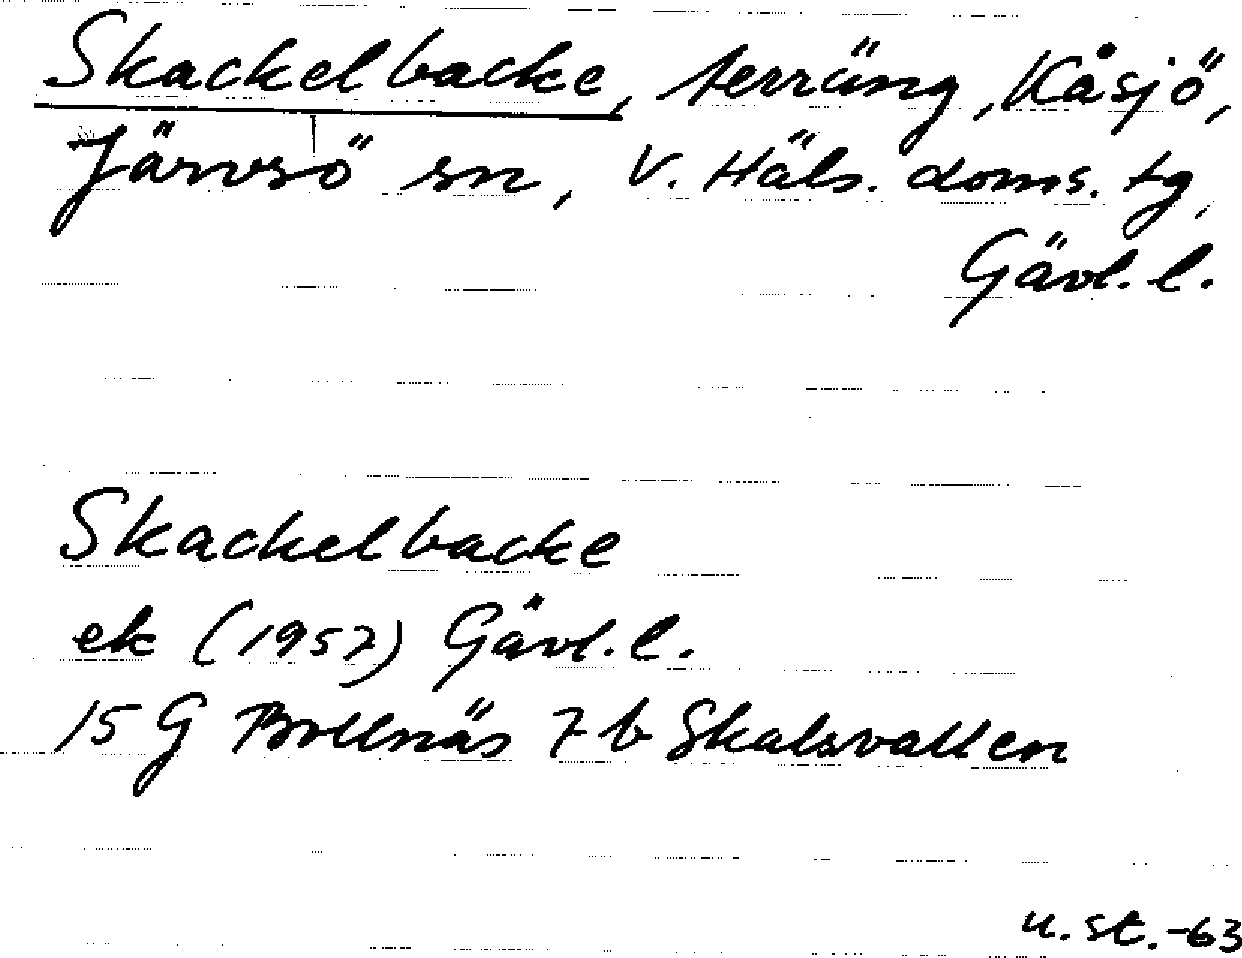 Skackelbacke, terräng, Kåsjö,
Järvsö sn, V. Häls. doms. tg,
Gävl. l.
Skackelbacke
ek (1957) Gävl. l.
15 G Bollnäs 7 b Skalsvallen
u. st. -63